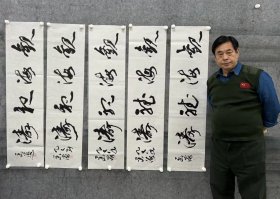 觀海聽濤
觀海聽濤
觀海聽濤
觀海聽濤
觀海聽濤